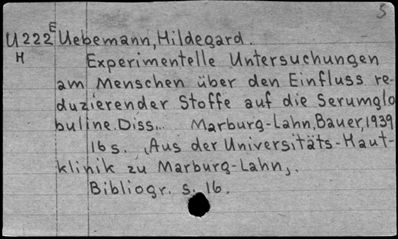 5
U222E Uebemann, Hildegard.
H Experimentelle Untersuchungen
am Menschen über den Einfluss re-
duzierender Stoffe auf die Serumglo
buline. Diss.. Marburg-Lahn, Bauer, 1939
16 s. (Aus der Universitäts-Haut-
klinik zu Marburg-Lahn).
Bibliogr. s. 16.